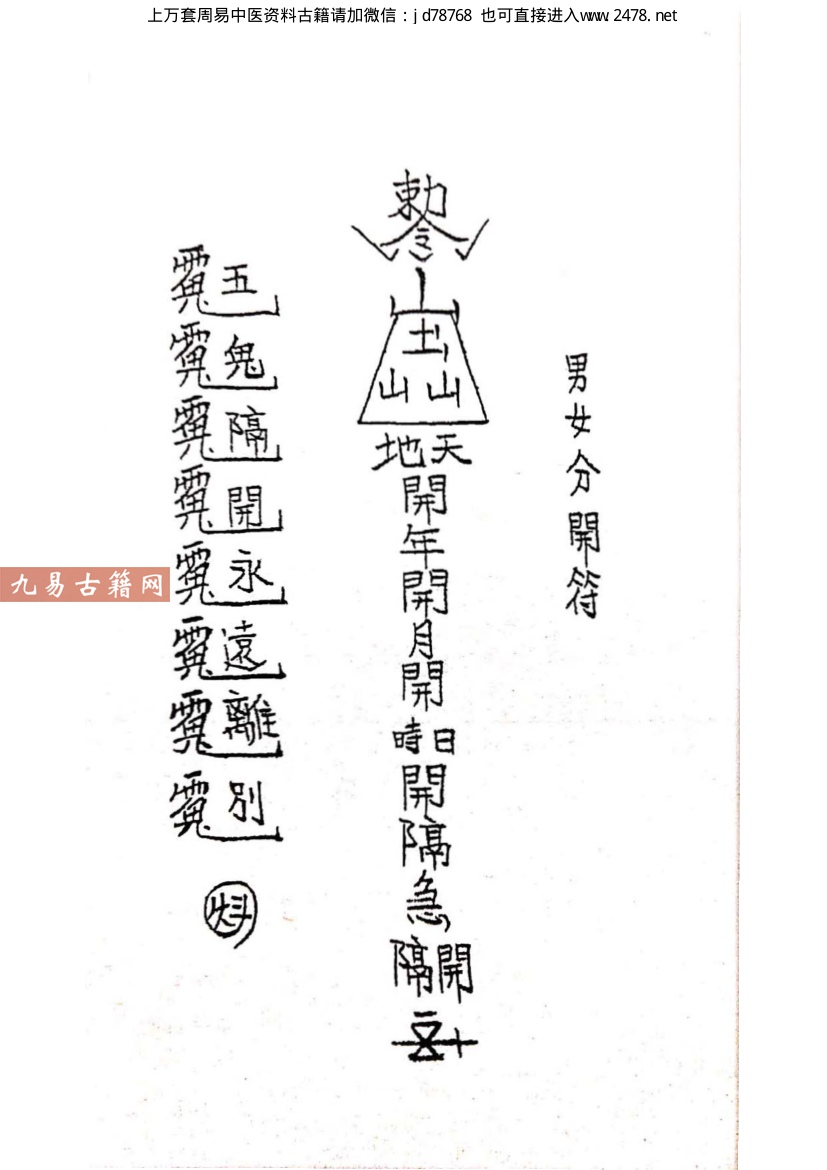 上万套周易中医资料古籍请加微信：jd78768 也可直接进入www.2478.net
男女分開符
勅令
山
土
山山
天地
開年開月開
日時
開隔急
開隔
五鬼隔開永遠離別
九易古籍网